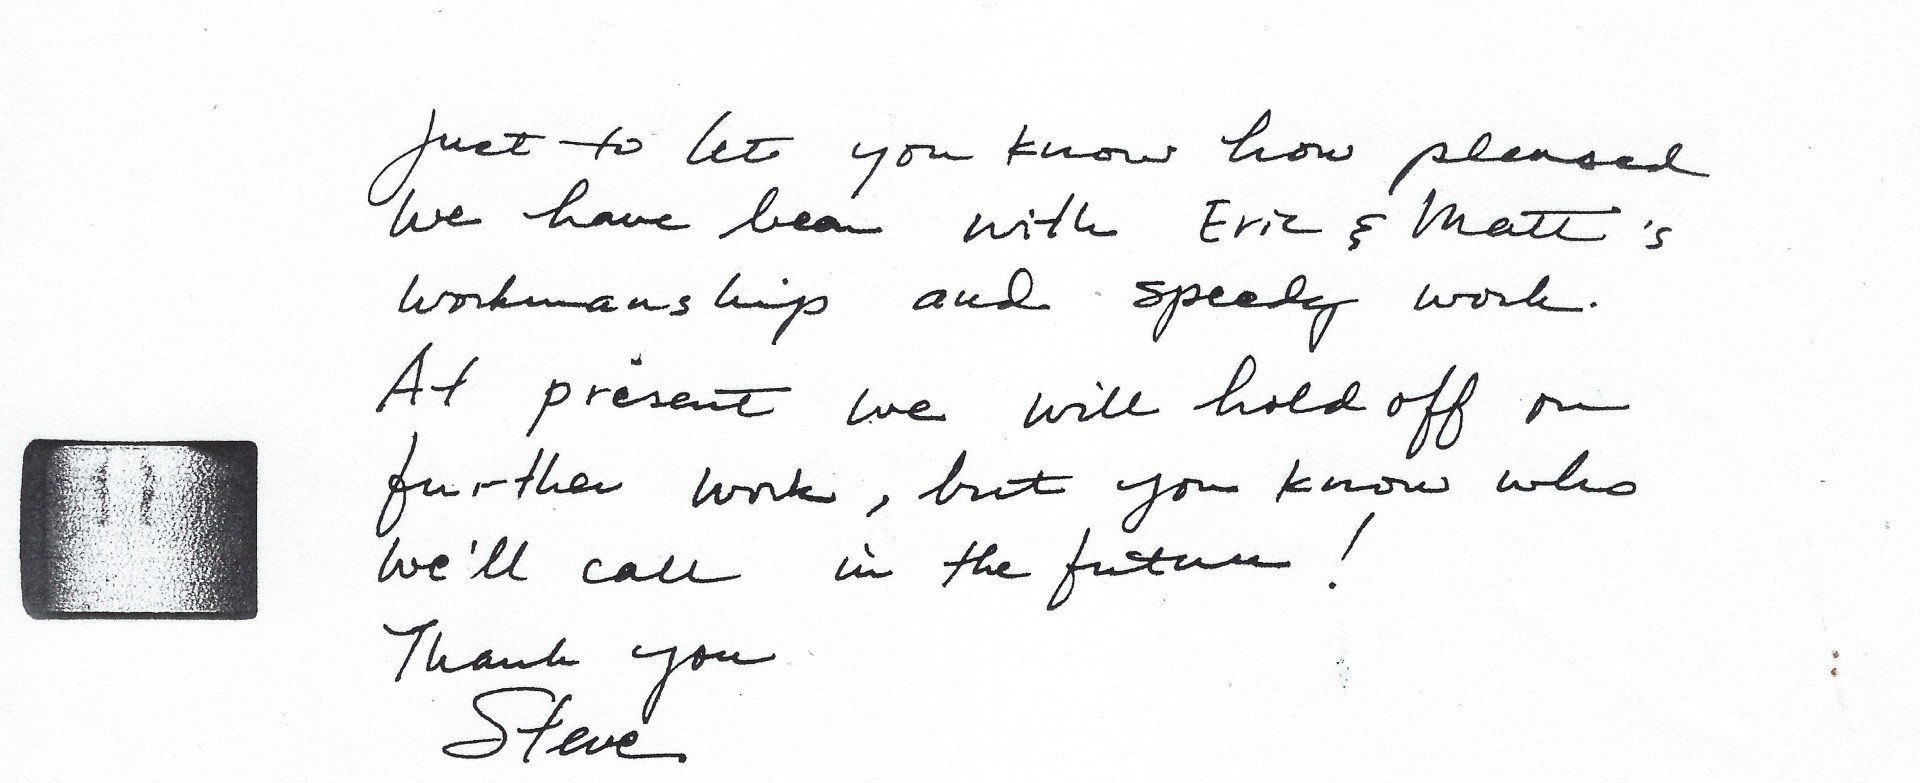 Just to let you know how pleased
we have been with Eric & Matt's
workmanship and speedy work.
At present we will hold off on
further work, but you know who
we'll call in the future!
Thank you
Steve